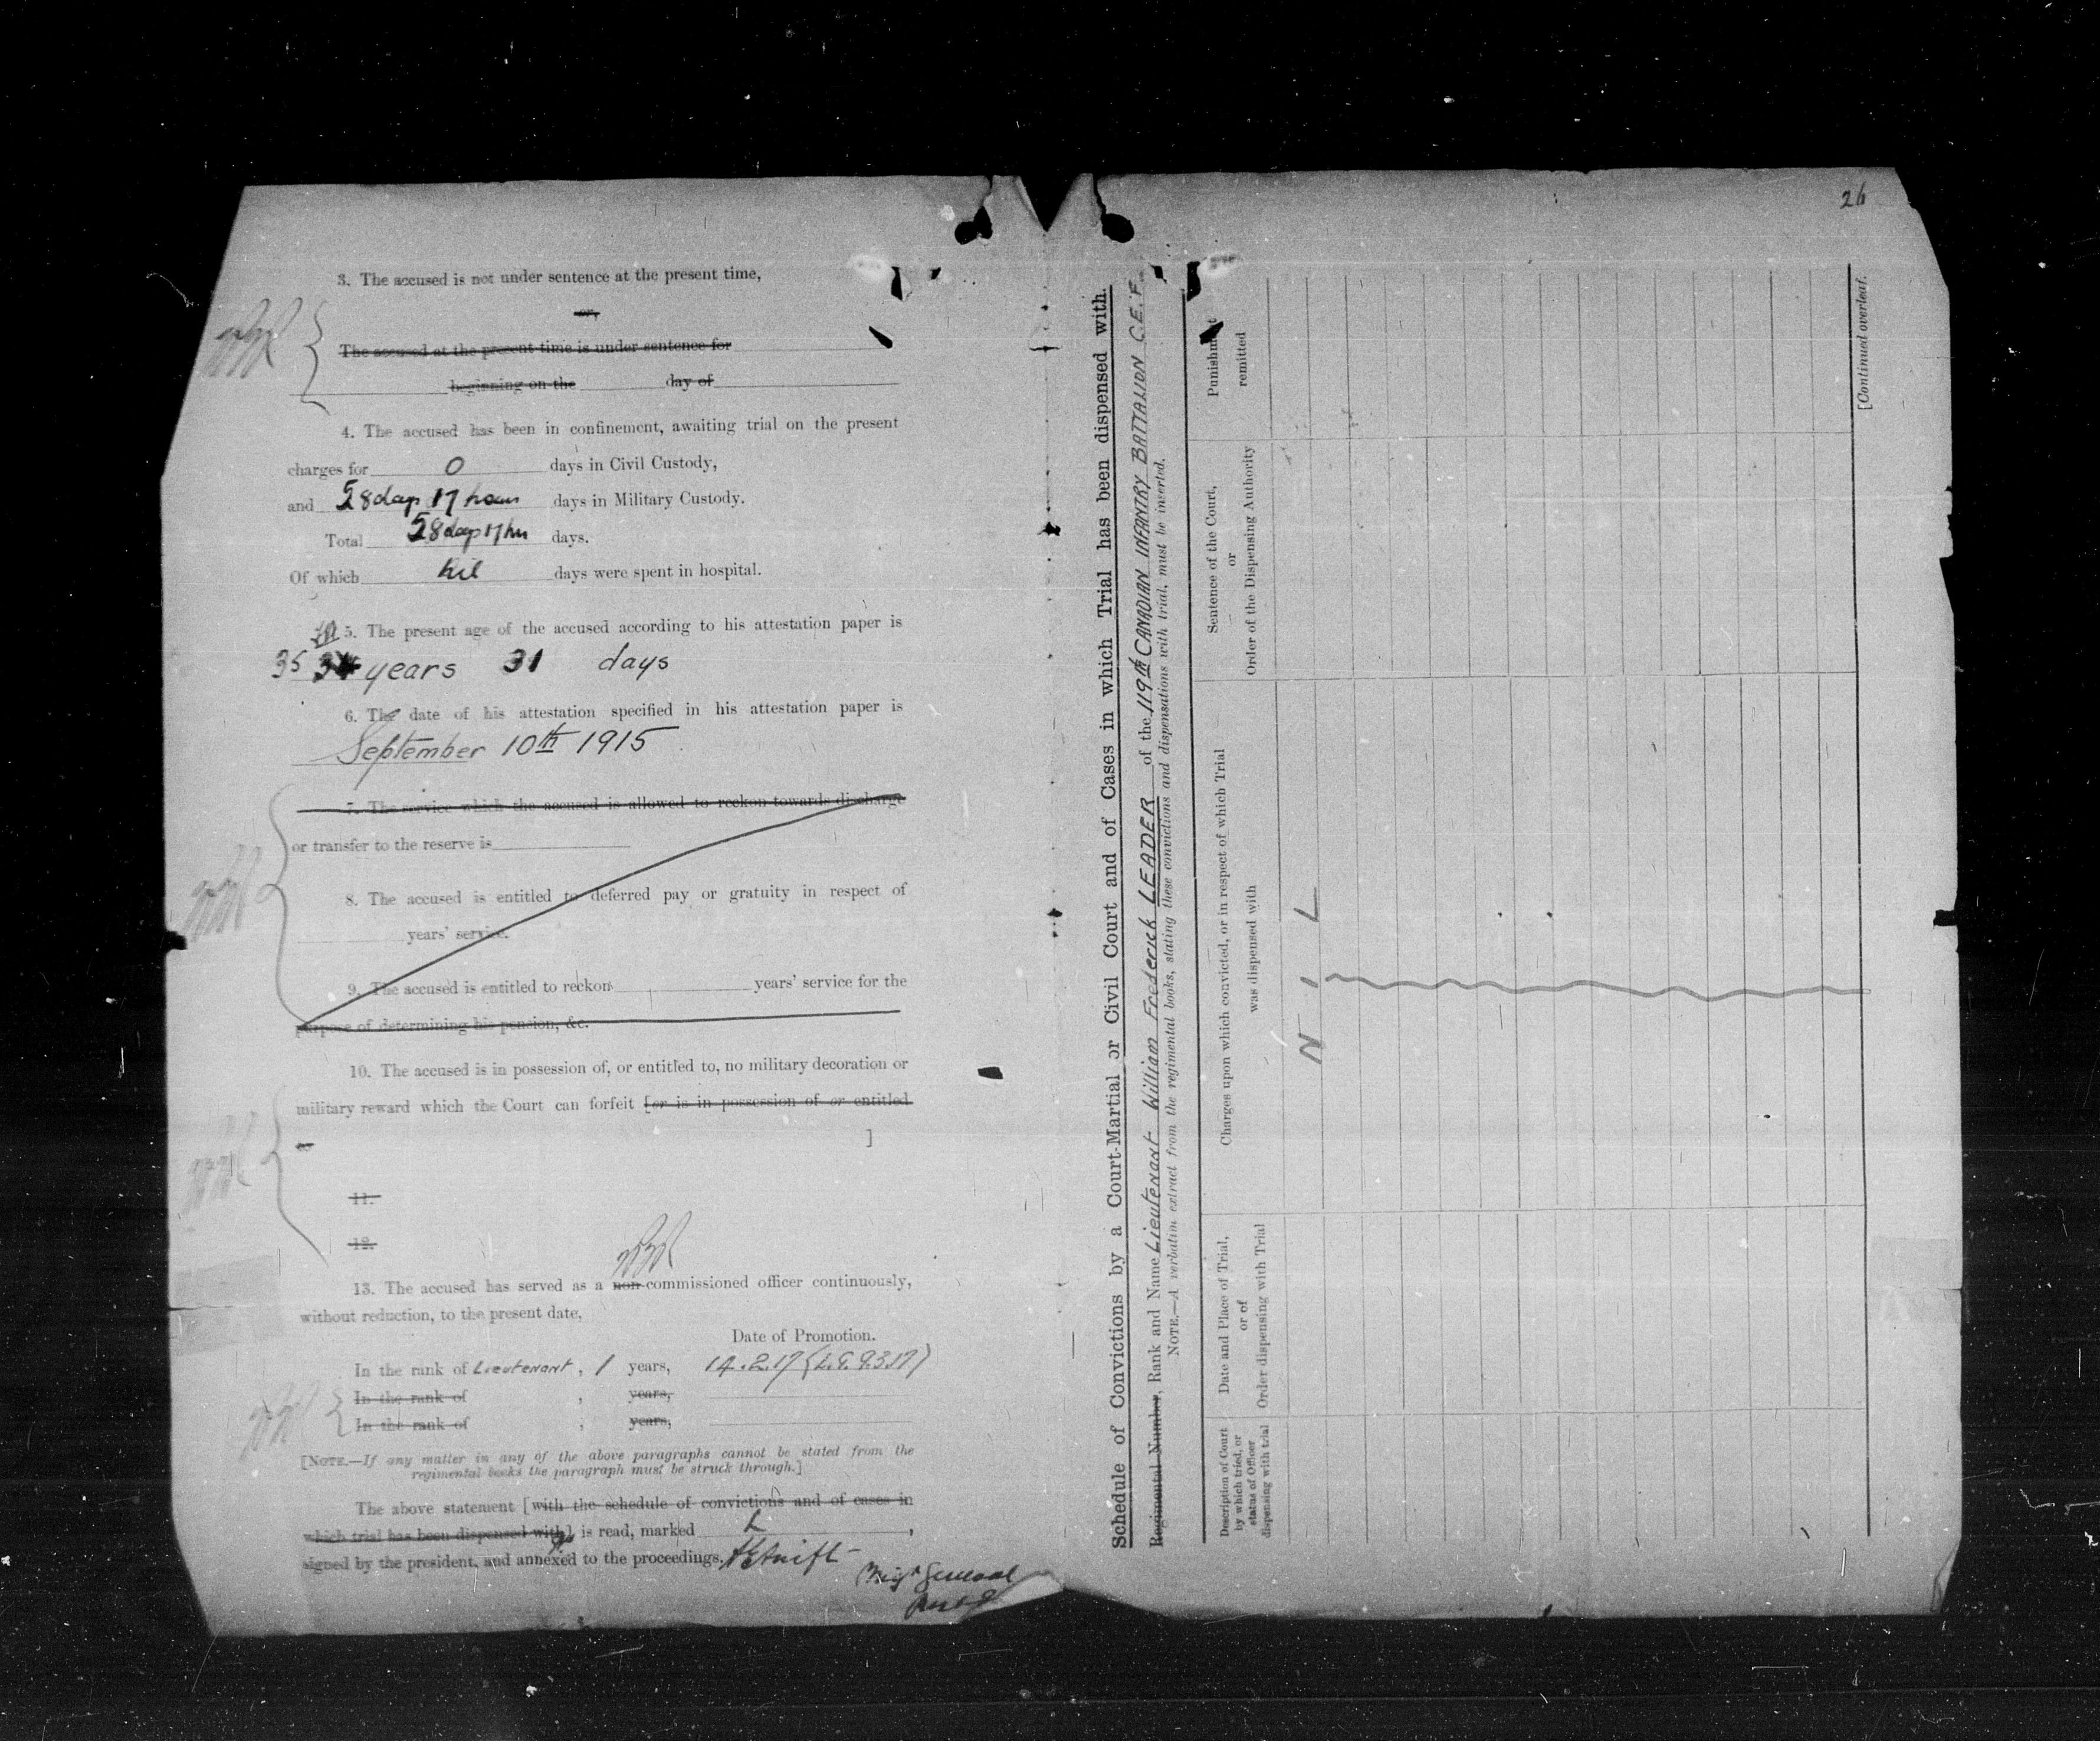 26
3. The accused is not under sentence at the present time,
or,
The accused at the present time is under sentence for
beginning on the day of
4. The accused has been in confinement, awaiting trial on the present
charges for 0 days in Civil Custody,
and 58 days 17 hours days in Military Custody.
Total 58 days 17 hrs days.
Of which Nil days were spent in hospital.
5. The present age of the accused according to his attestation paper is
35 34 years 31 days
6. The date of his attestation specified in his attestation paper is
September 10th 1915
7. The service which the accused is allowed to reckon towards discharge
or transfer to the reserve is
8. The accused is entitled to deferred pay or gratuity in respect of
years' service.
9. The accused is entitled to reckon years' service for the
purpose of determining his pension, &c.
10. The accused is in possession of, or entitled to, no military decoration or
military reward which the Court can forfeit [or is in possession of or entitled
to ]
11.
12.
13. The accused has served as a non-commissioned officer continuously,
without reduction, to the present date,
Date of Promotion.
In the rank of Lieutenant, 1 years, 14.2.17 (L.G. 9.3.17)
In the rank of , years,
In the rank of , years,
[NOTE.—If any matter in any of the above paragraphs cannot be stated from the
regimental books the paragraph must be struck through.]
The above statement [with the schedule of convictions and of cases in
which trial has been dispensed with] is read, marked L,
signed by the president, and annexed to the proceedings.
General
Schedule of Convictions by a Court-Martial or Civil Court and of Cases in which Trial has been dispensed with.
Regimental Number, Rank and Name Lieutenant William Frederick LEADER of the 119th CANADIAN INFANTRY BATTALION C.E.F.
NOTE.—A verbatim extract from the regimental books, stating these convictions and dispensations with trial, must be inserted.
Description of Court
by which tried, or
status of Officer
dispensing with trial
Date and Place of Trial,
or of
Order dispensing with Trial
Charges upon which convicted, or in respect of which Trial
was dispensed with
Sentence of the Court,
or
Order of the Dispensing Authority
Punishment
remitted
N I L
[Continued overleaf.